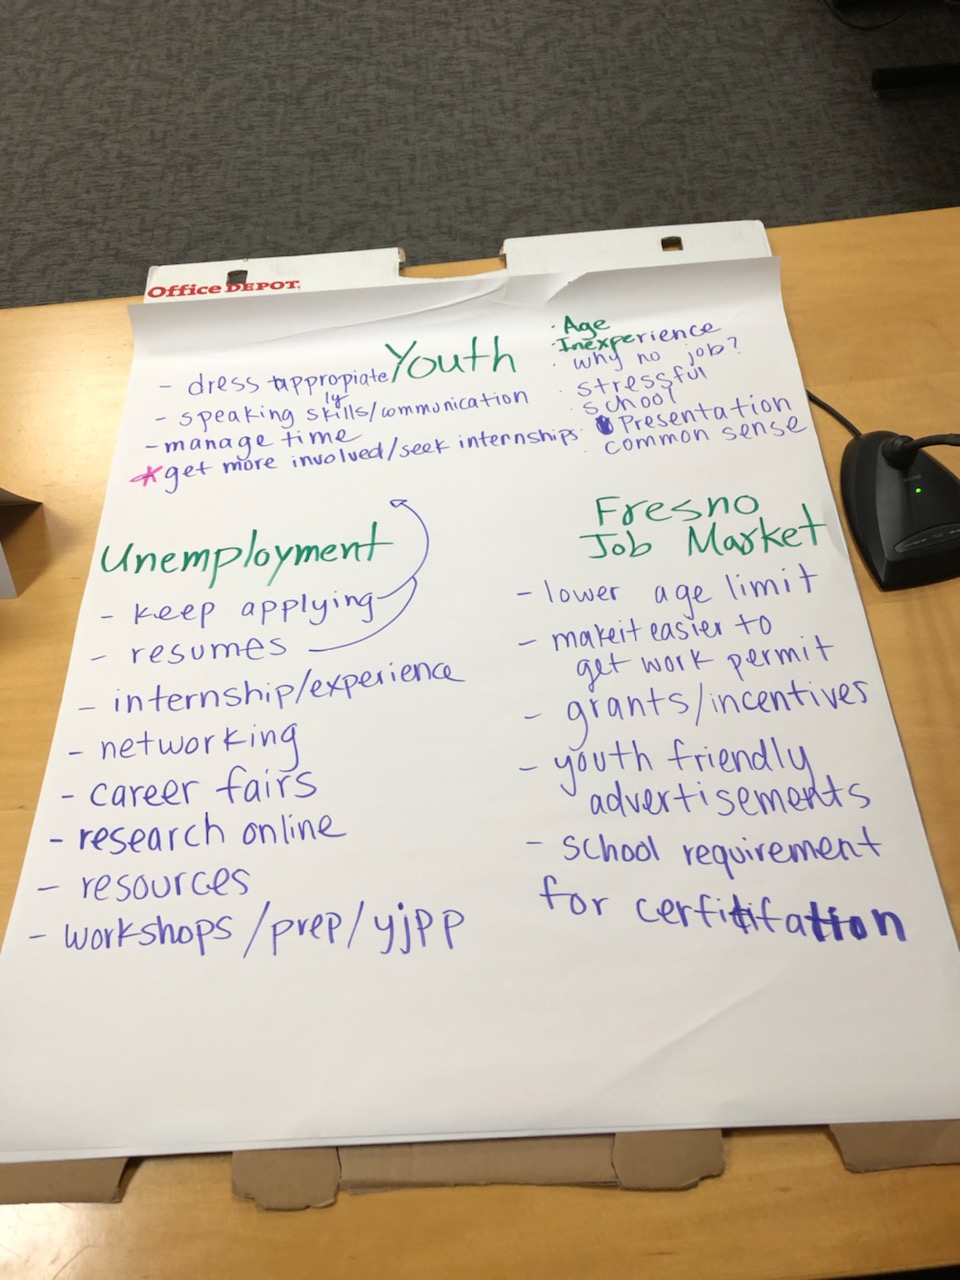 Office DEPOT
Youth
- dress appropiate
ly
- speaking skills/communication
- manage time
* get more involved/seek internships
· Age
· Inexperience
· why no job?
· stressful
· school
· Presentation
· common sense
Unemployment
- keep applying
- resumes
- internship/experience
- networking
- career fairs
- research online
- resources
- workshops/prep/yjpp
Fresno
Job Market
- lower age limit
- make it easier to
get work permit
- grants/incentives
- youth friendly
advertisements
- school requirement
for certitifation